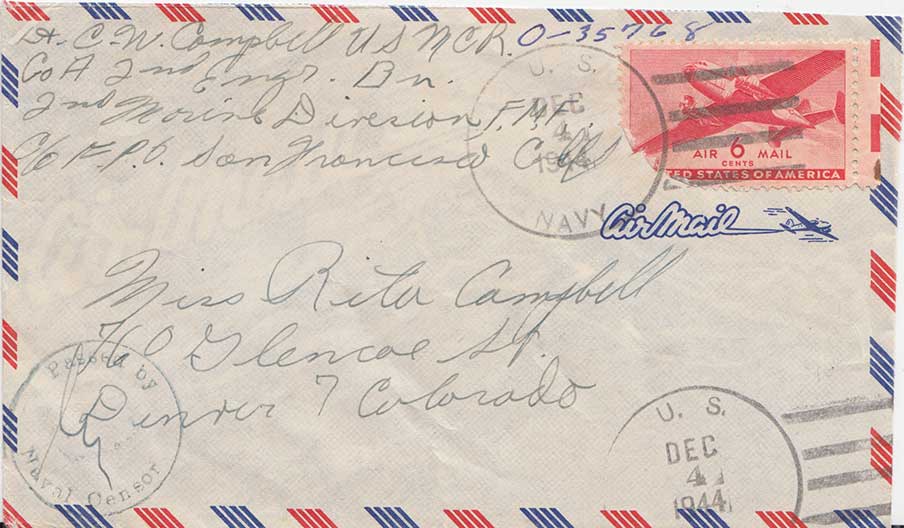 Lt. C. W. Campbell USNCR. O-35768
Co A 2nd Engr. Bn.
2nd Marine Division F.M.F.
C/o F.P.O. San Francisco Calif
U. S.
DEC
4
1944
NAVY
AIR 6 MAIL
CENTS
TED STATES OF AMERICA
Air Mail
Miss Rita Campbell
760 Glencoe St.
Denver 7 Colorado
Passed by
Naval Censor
U. S.
DEC
4
1944